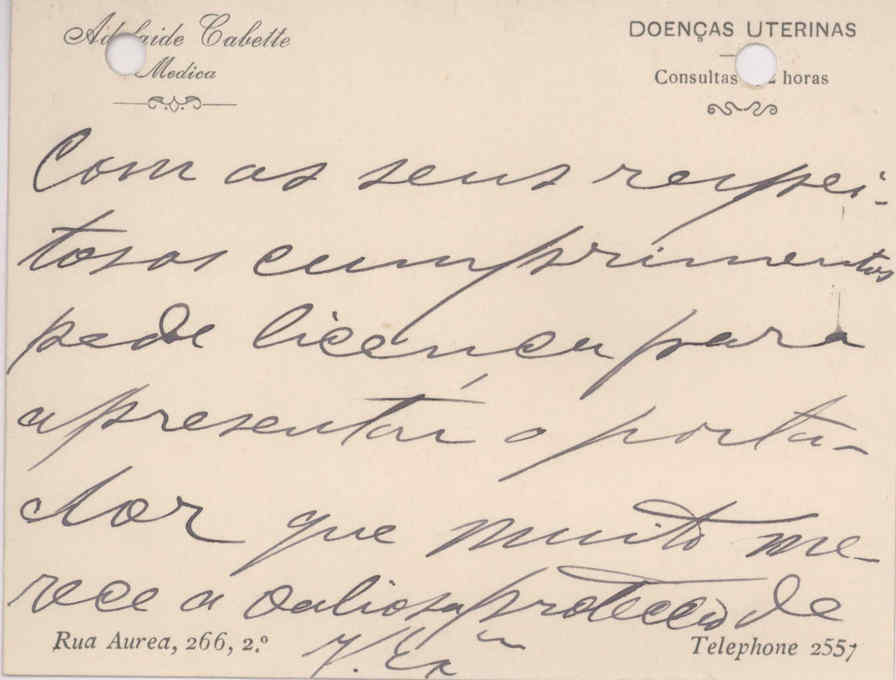 Adelaide Cabette
Medica
DOENÇAS UTERINAS
Consultas horas
Com os seus respei-
tosos cumprimentos
pede licença para
apresentar o porta-
dor que muito me-
rece a valiosa protecção de
V. Exª
Rua Aurea, 266, 2.º
Telephone 2557